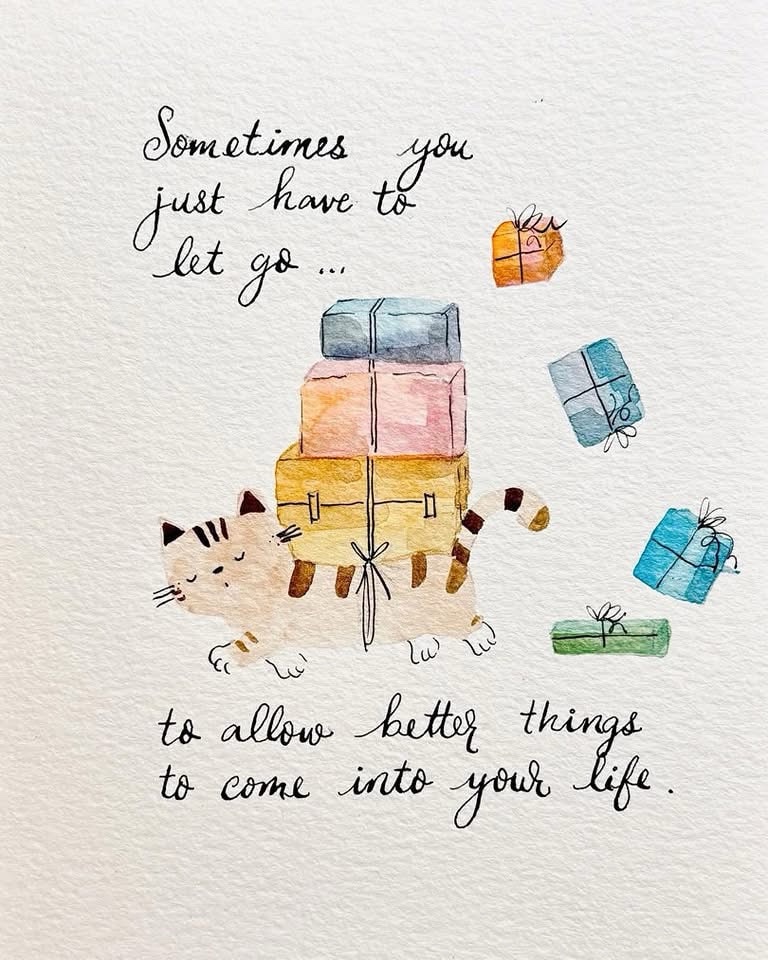 Sometimes you
just have to
let go ...
to allow better things
to come into your life.